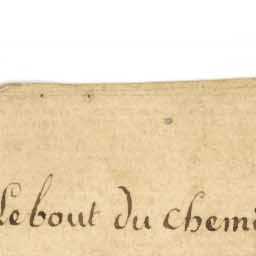 le bout du chemi